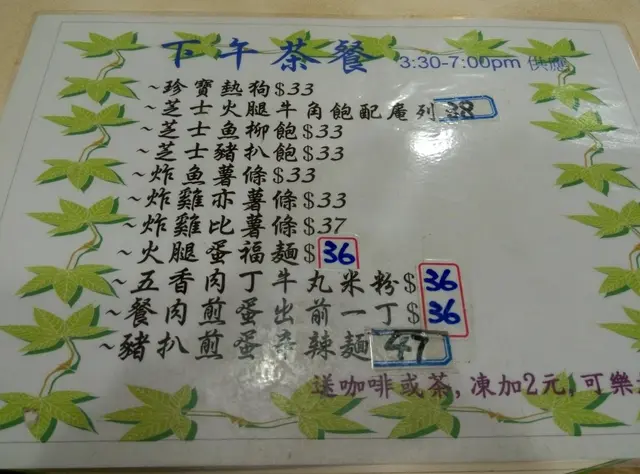 下午茶餐 3:30-7:00pm 供應
~珍寶熱狗$33
~芝士火腿牛角飽配庵列 38
~芝士魚柳飽$33
~芝士豬扒飽$33
~炸魚薯條$33
~炸雞亦薯條$33
~炸雞比薯條$37
~火腿蛋福麵$36
~五香肉丁牛丸米粉$36
~餐肉煎蛋出前一丁$36
~豬扒煎蛋辛辣麵 47
送咖啡或茶,凍加2元,可樂